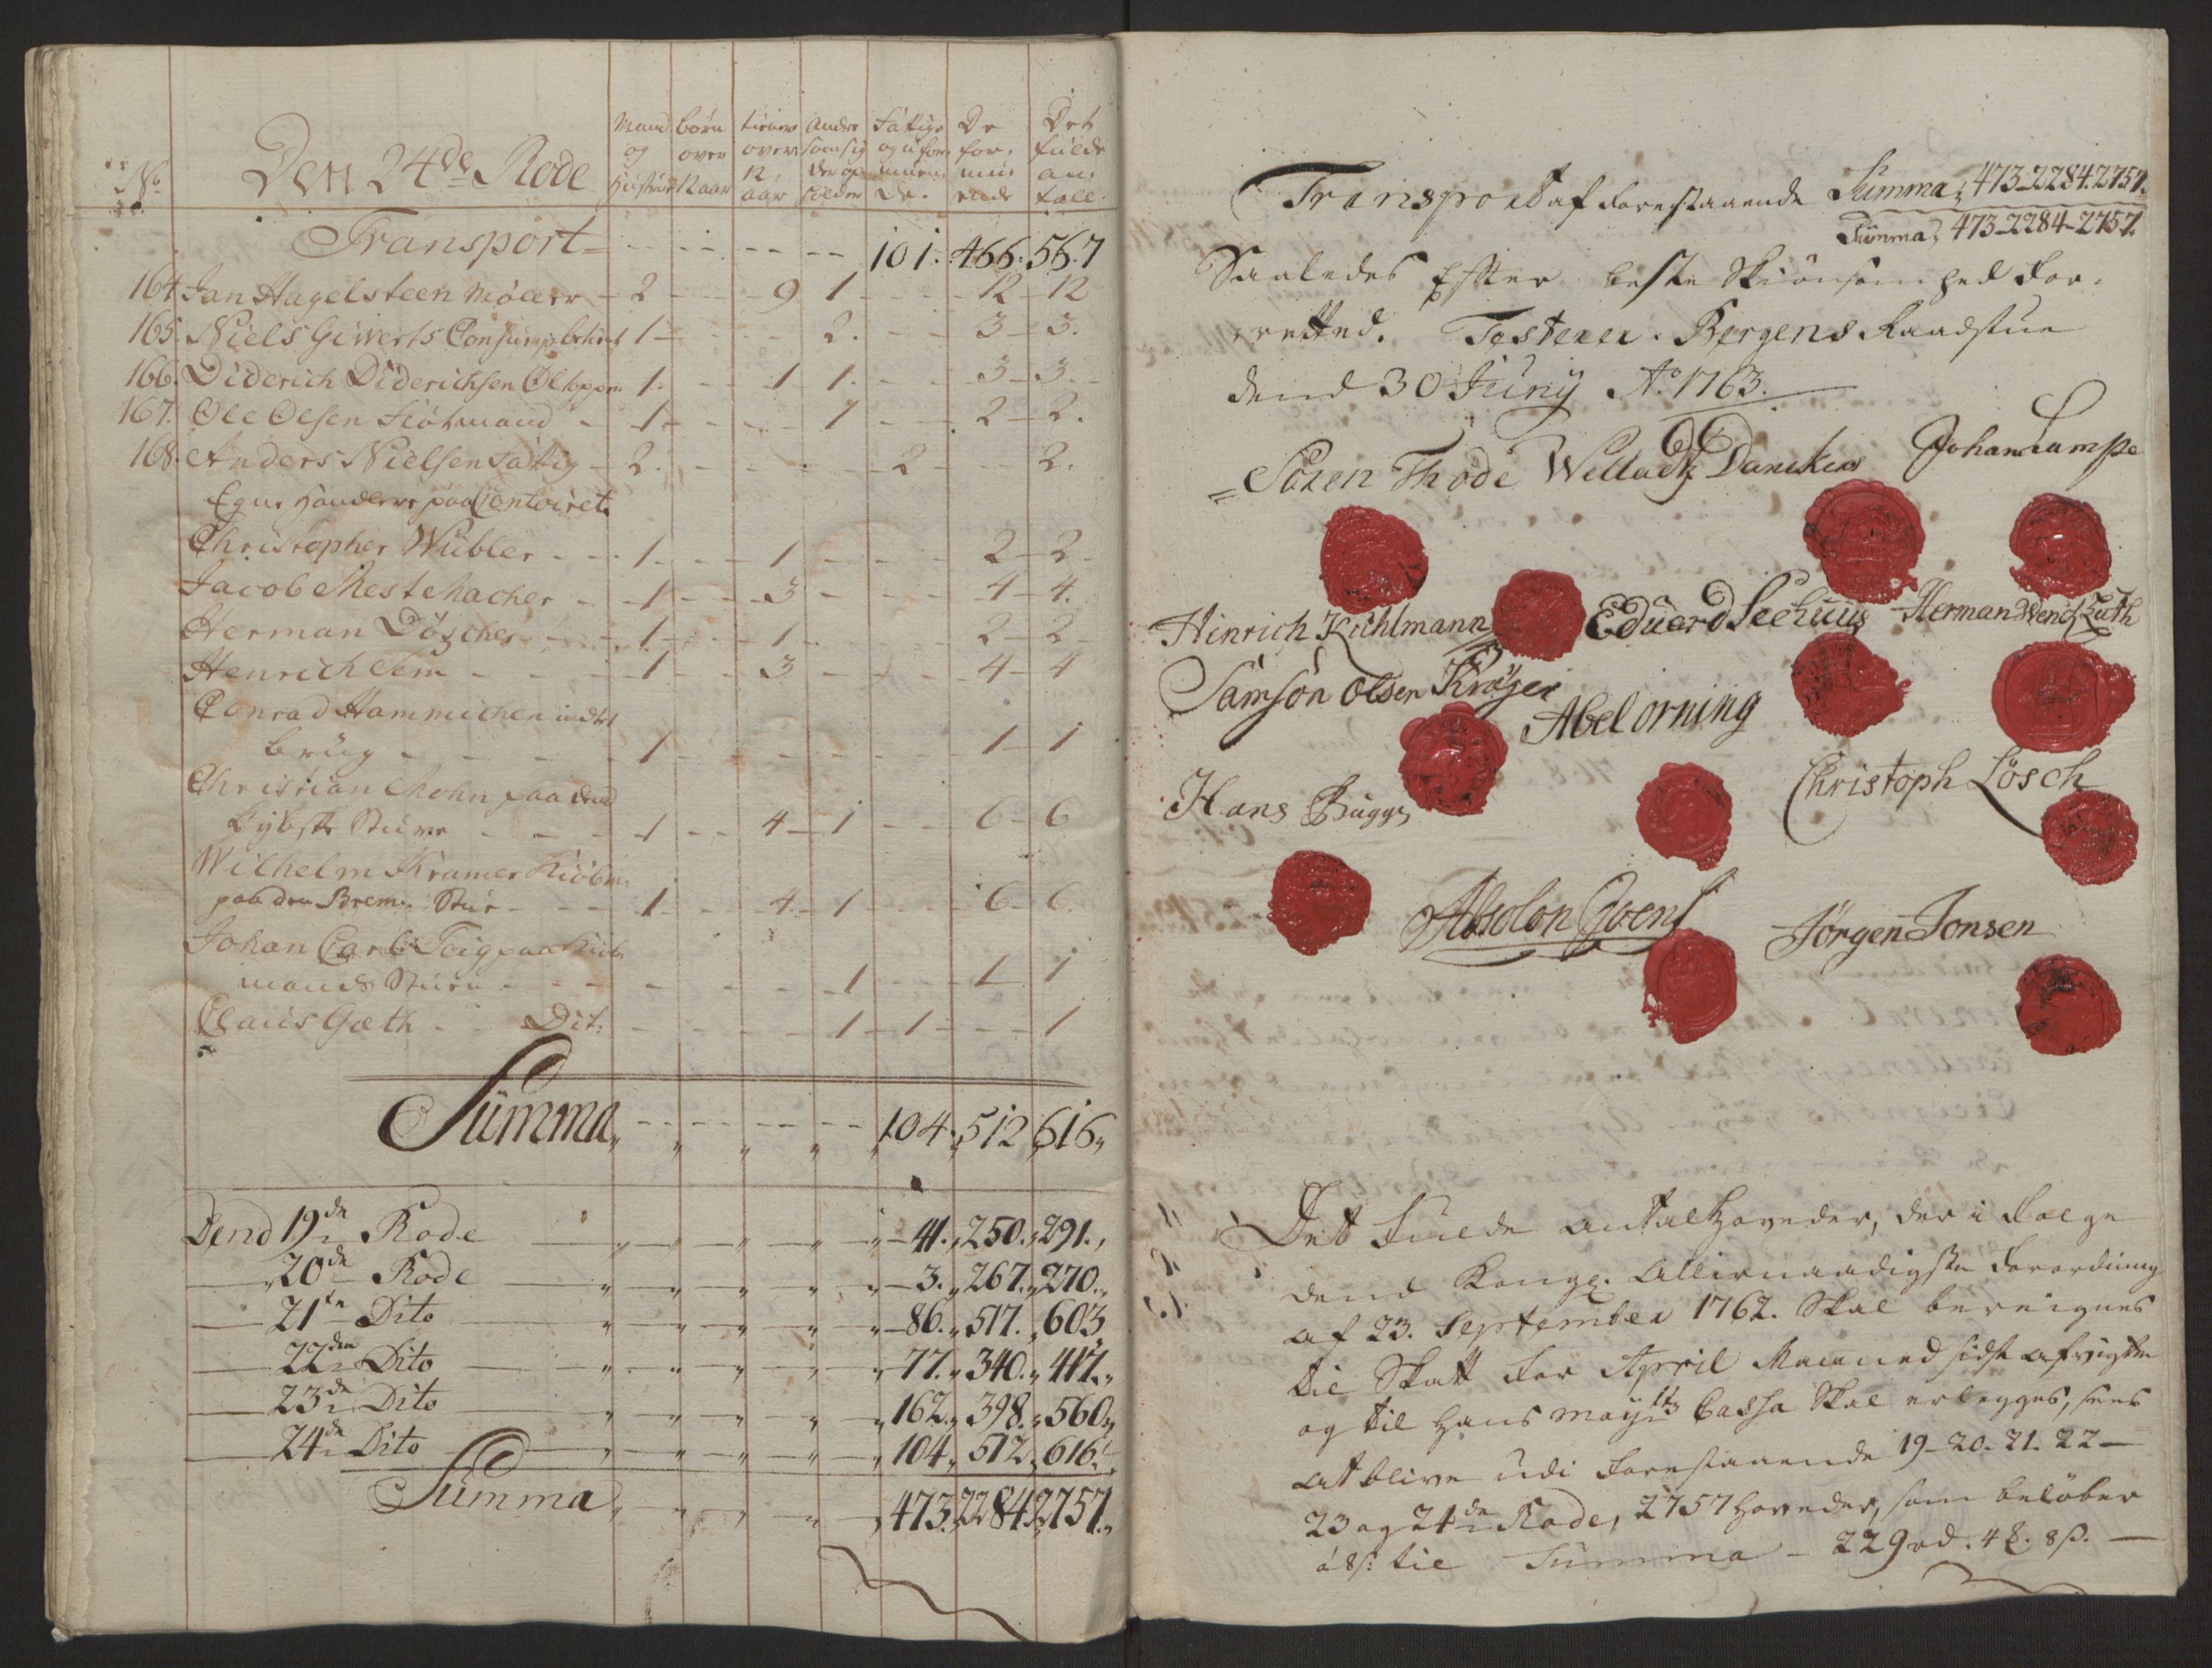 No. Den 24de Rode
Mand og Hustrue
børn over 12 aar
tienere over 12 aar
Andre som sig
Fattige og uformuende
De formuende
Det fulde antall
Transport 101. 466. 567
164 Jan Hagelsteen Møller 2 9 1 12 12
165. Niels Giwerts Consumpbetient 1 2. 3 3.
166. Diderich Diderichsen Øltapper 1. 1 1. 3 3.
167. Ole Olsen Slötmand 1. 1 2 2.
168. Anders Nielsen fattig 2. 2 2.
Egne handlere paa Contoiret.
Christopher Wübler 1 1 2 2
Jacob Mestmacher 1 3 4 4.
Herman Döscher 1 1 2 2
Henrich Sem 1 3 4 4
Conrad Hammichen
brug 1 1 1
Christian Mohn paa den
Lybske Stuve 1 4 1 6 6
Wilhelm Kramer Kiöbm.
paa den Brem. Stue 1 4 1 6 6.
Johan Carl Toig paa Kiöb
mands Stuen 1 1 1
Claus Gæth Dit. 1 1 1
Summa 104. 512 616
Dend 19de Rode 41. 250. 291.
20de Rode 3. 267. 270.
21te Dito 86. 517. 603
22den Dito 77. 340. 417.
23de Dito 162. 398. 560
24de Dito 104. 512. 616.
Summa 473. 2284. 2757.
Transport af forestaaende Summa 473_2284.2757.
Summa 473_2284_2757.
Saaledes Efter beste Skiønsomhed for-
retted. Testerer. Bergens Raadstue
dend 30 Juny Ao. 1763.
Sören Thode Welladz Danckers Johan Lampe
Hinrich Kuhlmann Eduard Seehuus Herman Wencz Zuth
Samson Olsen Kröger Abel orning
Hans Bugge Christoph Lösch
Absolon Goens Jörgen Jonsen
Dett Fulde Antal Hoveder, der i Følge
dend Kongl. Allernaadigste Forordning
af 23. September 1762. Skal bereignes
til Skatt for April Maaned sidst afvigte
og til Hans Mayts Cassa Skal erlegges, sees
att blive udi forestaaende 19-20. 21. 22
23 og 24de Rode, 2757 Hoveder, som beløber
à 8s: til Summa - 229 rd. 4 8s.